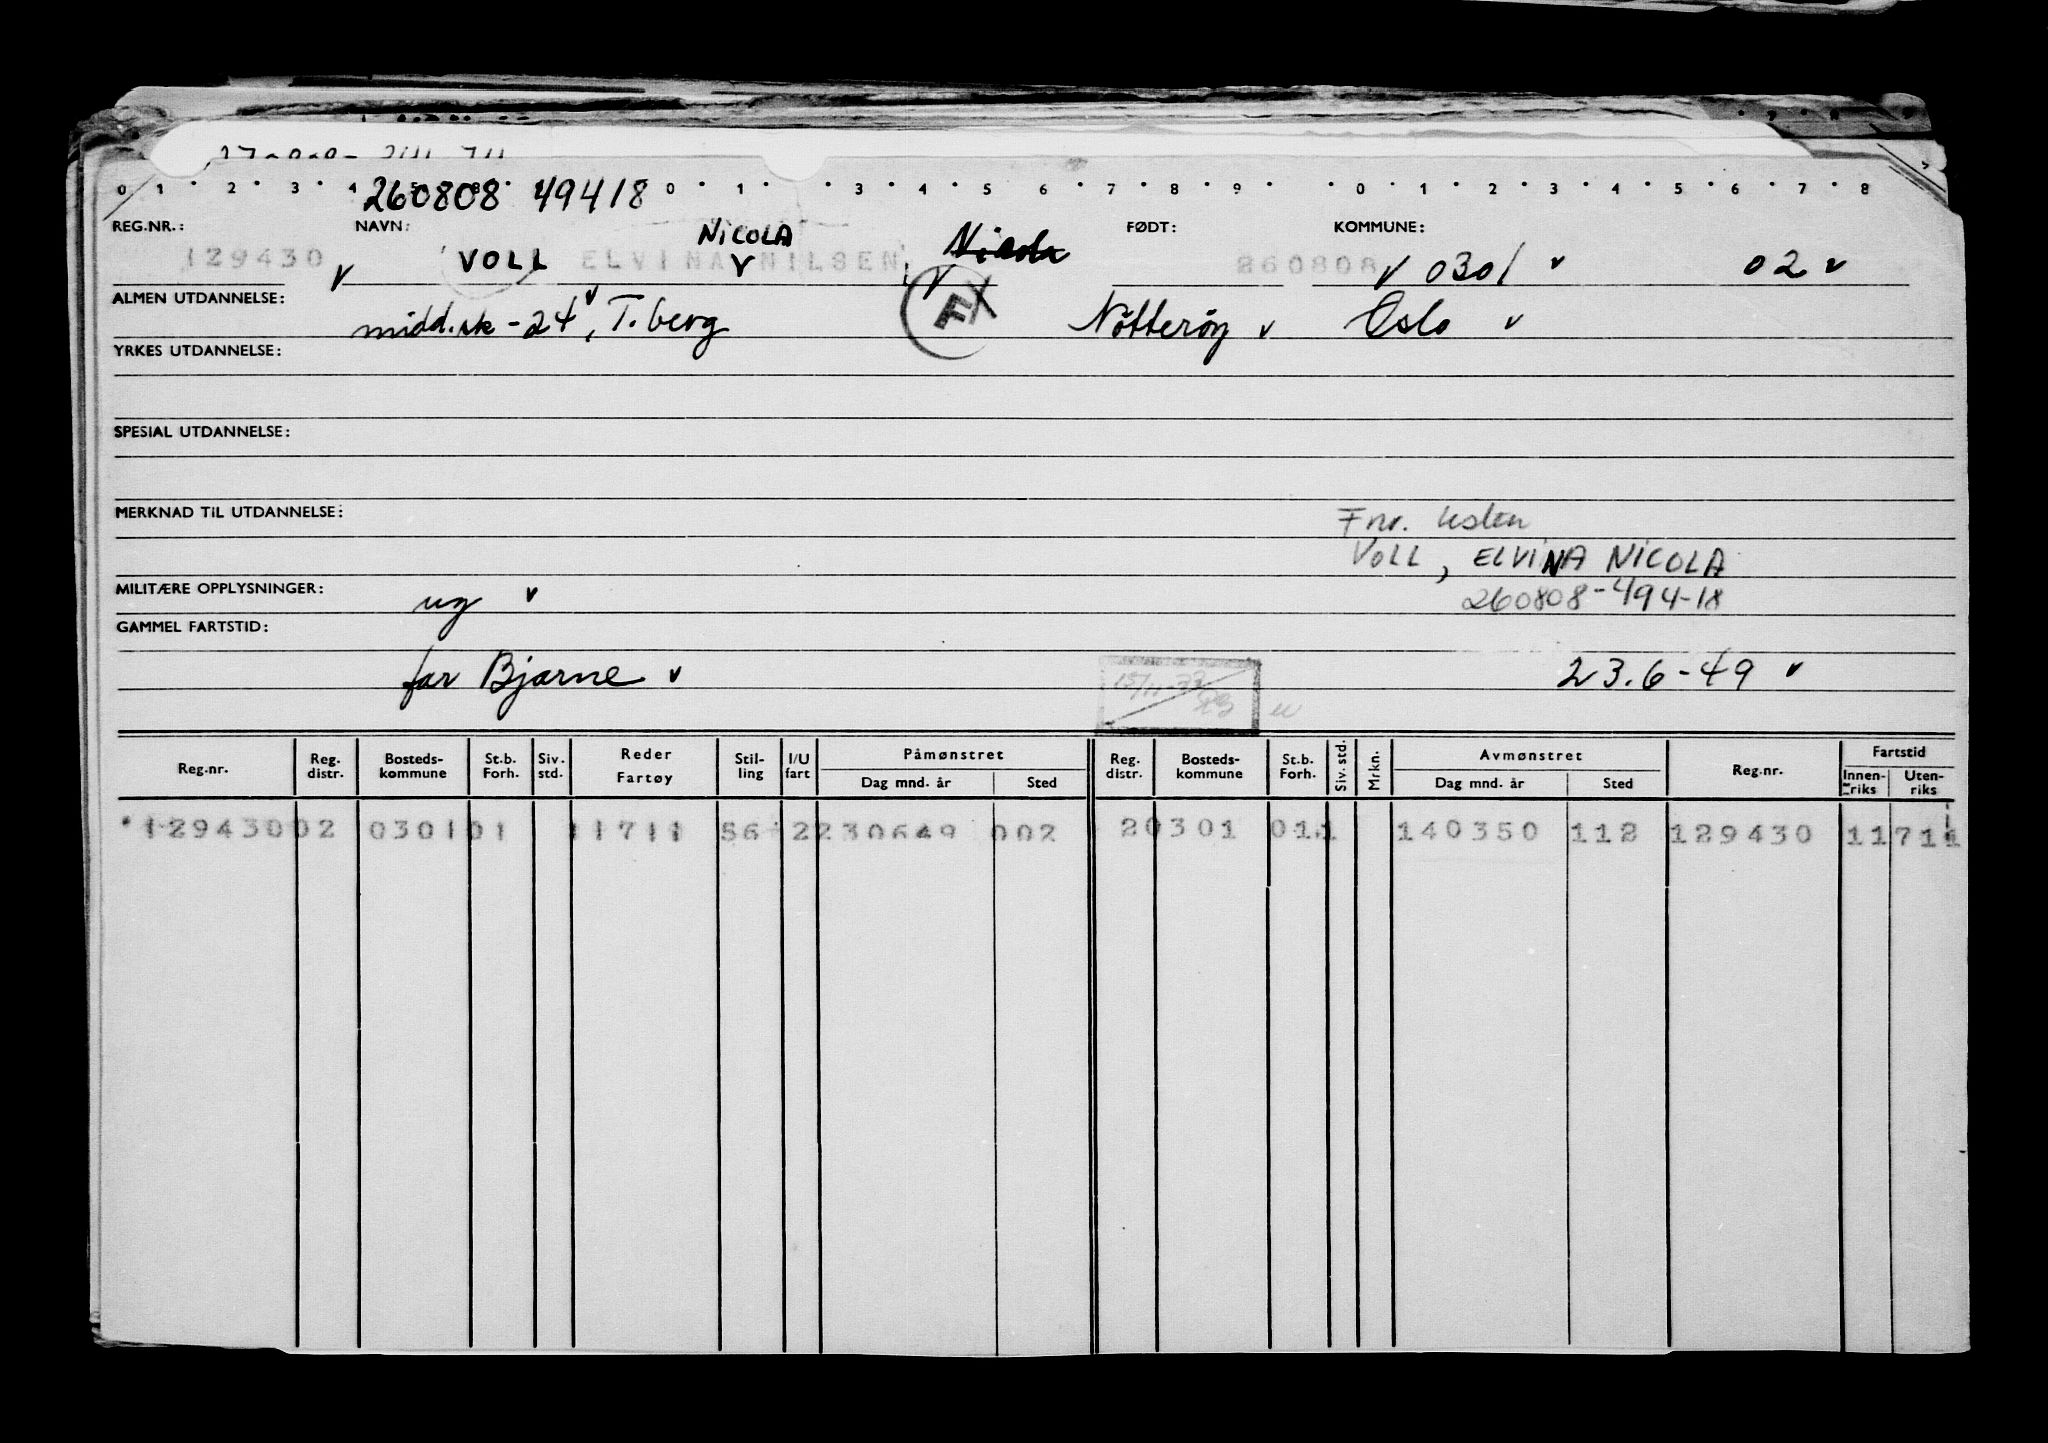 0 1 2 3 4 5 8 0 1 3 4 5 6 7 8 9 0 1 2 3 4 5 6 7 8
260808 49418
REG.NR.: NAVN: NICOLA FØDT: KOMMUNE:
129430 v VOLL ELVINA v NILSEN v Nicola 260808 v 0301 v 02 v
ALMEN UTDANNELSE: midd.sk - 24 v, T.berg FX Nötteröy v Oslo v
YRKES UTDANNELSE:
SPESIAL UTDANNELSE:
MERKNAD TIL UTDANNELSE:
Fnr. listen
VOLL, ELVINA NICOLA
260808-494-18
MILITÆRE OPPLYSNINGER: ug v
GAMMEL FARTSTID:
far Bjarne v 23.6-49 v
Reg.nr. Reg. distr. Bosteds-kommune St.b. Forh. Siv. std. Reder Fartøy Stil-ling I/U fart Påmønstret Dag mnd. år Sted Reg. distr. Bosteds-kommune St.b. Forh. Siv. std. Mrkn. Avmønstret Dag mnd. år Sted Reg.nr. Fartstid Innen-riks Uten-riks
129430 02 0301 01 11711 56 2 230649 002 20301 011 140350 112 129430 11711